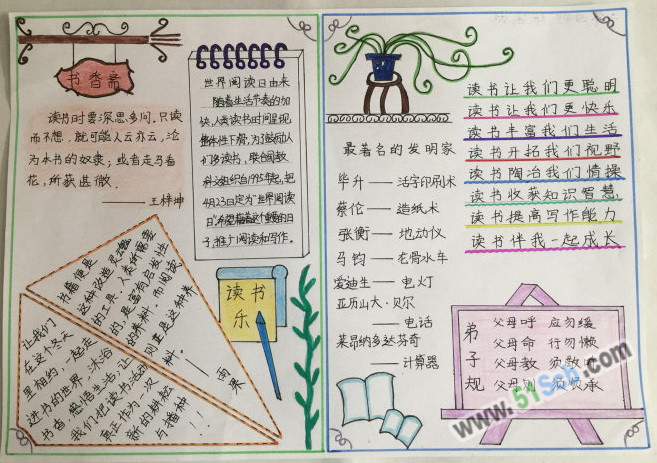 书香斋
读书时要深思多问。只读
而不想,就可能人云亦云,沦
为本书的奴隶;或者走马看
花,所获甚微。
——王梓坤
世界阅读日由来
随着生活节奏的加
快,人类读书时间呈现
整体性下滑,为了鼓励人
们多读书,联合国教
科文组织自1995年起,把
4月23日定为"世界阅读
日",希望借着这个重要的日
子,推广阅读和写作。
书籍便是
这种改造灵魂
的工具。人类所需要
的,是富有启发性
的养料。而阅读
则正是这种养
料。
——雨果
让我们
在这个冬天
里相约,一起走
进书的世界,沐浴
书香,感悟生活,让
我们把读书活动
真正作为一次
新的耕耘
与播种
!!
读书
乐
最著名的发明家
毕升——活字印刷术
蔡伦——造纸术
张衡——地动仪
马钧——老骨水车
爱迪生——电灯
亚历山大·贝尔
——电话
莱昂纳多达芬奇
——计算器
读书让我们更聪明
读书让我们更快乐
读书丰富我们生活
读书开拓我们视野
读书陶冶我们情操
读书收获知识智慧
读书提高写作能力
读书伴我一起成长
弟子规
父母呼 应勿缓
父母命 行勿懒
父母教 须敬听
父母责 须顺承
www.51Scb.com